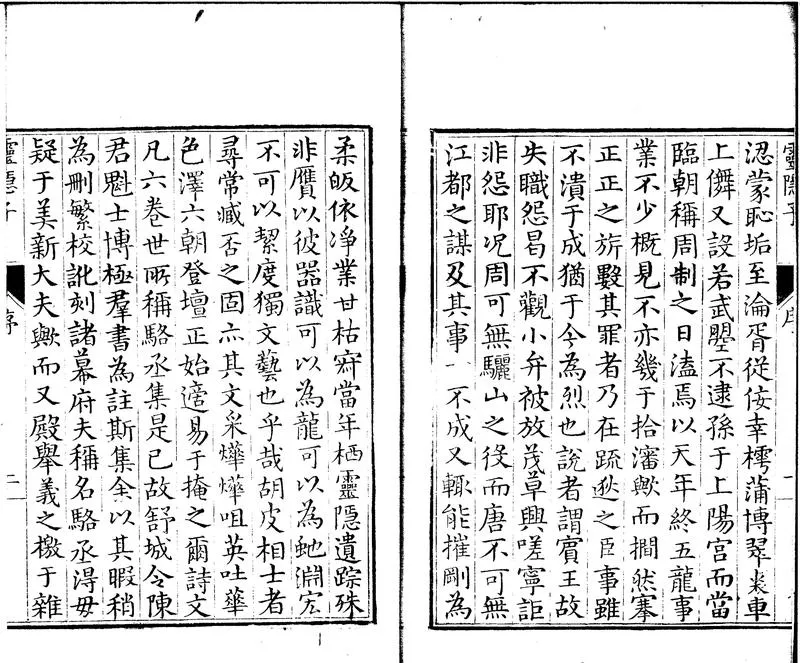 忍蒙恥垢至淪胥從佞幸樗蒲博翠裘車
上儛又設若武曌不逮孫于上陽宮而當
臨朝稱周制之日溘焉以天年終五龍事
業不少概見不亦幾于拾瀋歟而擱然搴
正正之旂數其罪者乃在疏逖之臣事雖
不潰于成猶于今為烈也說者謂賓王故
失職怨曷不觀小弁被放茂草興嗟寧詎
非怨耶况周可無驪山之役而唐不可無
江都之謀及其事一不成又輒能摧剛為
靈隱子
序
二
柔皈依淨業甘枯寂當年栖靈隱遺踪殊
非贋以彼器識可以為龍可以為虵淵宏
不可以絜度獨文藝也乎哉胡皮相士者
尋常臧否之固亦其文采燁燁咀英吐華
色澤六朝登壇正始適易于掩之爾詩文
凡六卷世所稱駱丞集是已故舒城令陳
君魁士博極羣書為註斯集余以其暇稍
為刪繁校訛刻諸幕府夫稱名駱丞得毋
疑于美新大夫歟而又殿舉義之檄于雜
靈隱子
序
二